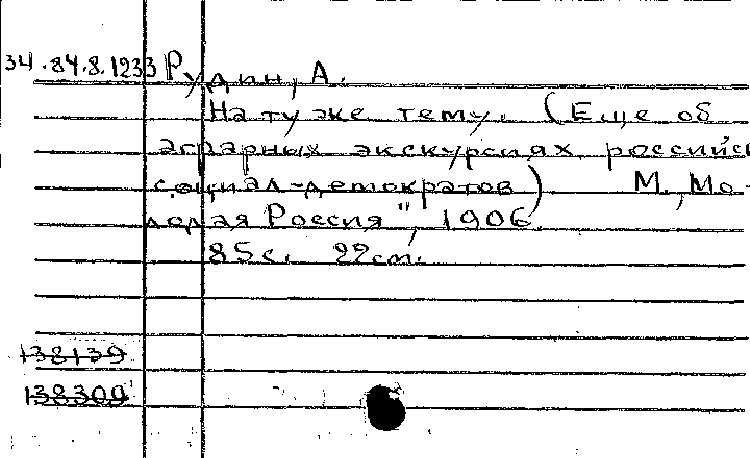 34.84.8.1233 Рудин, А.
На ту же тему. (Еще об
аграрных экскурсиях российс
социал-демократов) М., Мо-
лодая Россия", 1906.
85 с. 22 cm.
138139
138309